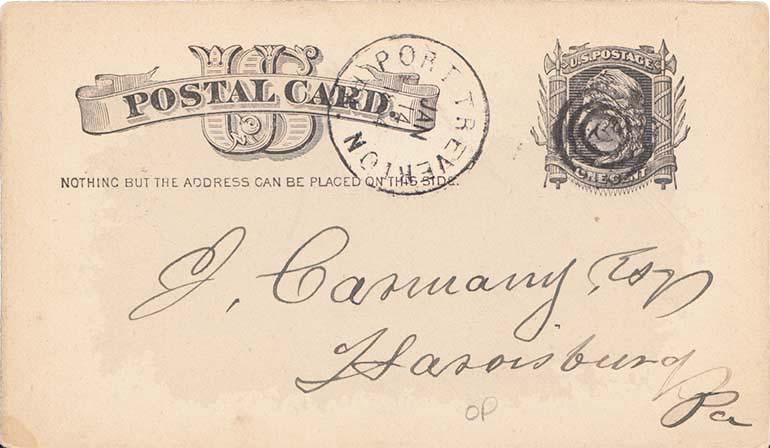 US
POSTAL CARD
PORT TREVERTON
JAN
14
U.S. POSTAGE
ONE CENT
NOTHING BUT THE ADDRESS CAN BE PLACED ON THIS SIDE.
J. Carmany, Esq
Harrisburg
Pa
OP